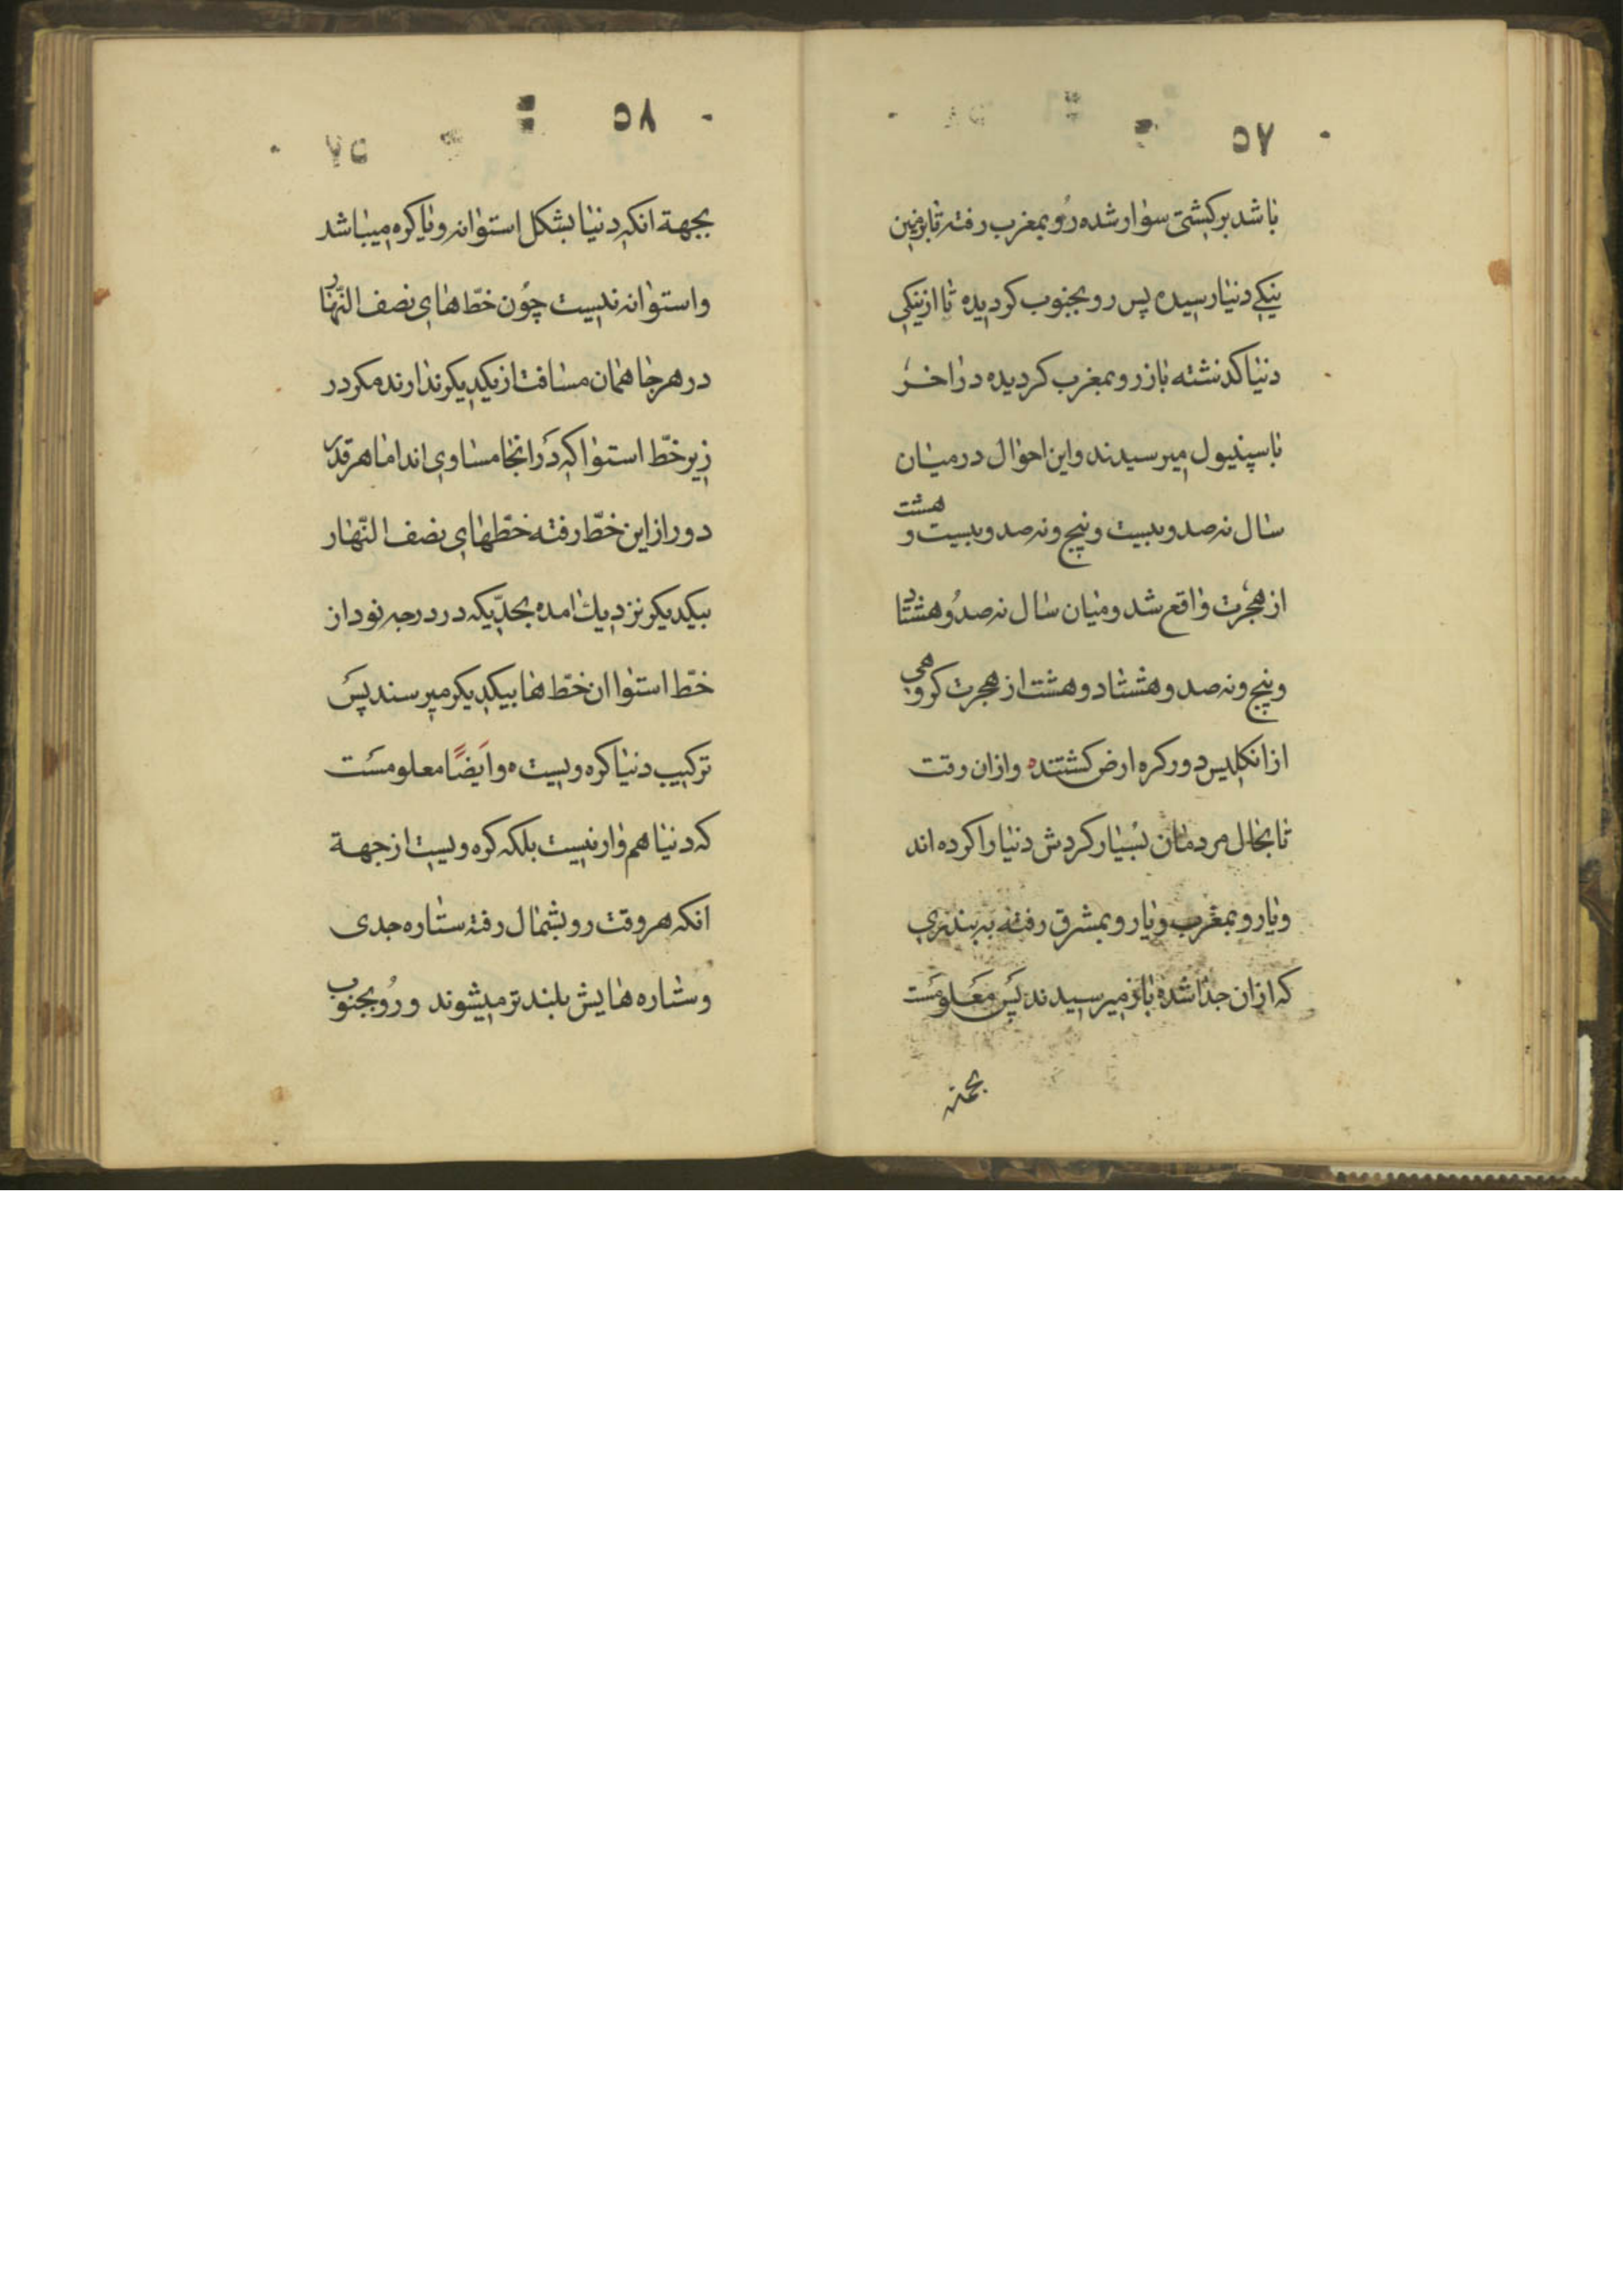 ۵۷
باشد بر کشتی سوار شده رو بمغرب رفته تا بزمین
ینکی دنیا رسیده پس رو بجنوب کردیده تا از ینکی
دنیا کذشته باز رو بمغرب کردیده در اخر
باسپنیول میرسیدند و این احوال در میان
سال نه صد و بیست و پنج و نه صد و بیست و هشت
از هجرت واقع شد و میان سال نه صد و هشتاد
و پنج و نه صد و هشتاد و هشت از هجرت کروهی
از انکلیس دور کره ارض کشتند و ازان وقت
تا بحال مردمان بسیار کردش دنیا را کرده اند
و یا رو بمغرب و یا رو بمشرق رفته به بندری
که ازان جدا شده باز میرسیدند پس معلومست
بجهته
۵۸
بجهة انکه دنیا بشکل استوانه و یا کره میباشد
و استوانه نیست چون خطّ های نصف النّهار
در هر جا همان مسافت از یکدیکر ندارند مکر در
زیر خطّ استوا که در انجا مساوی اند اما هر قدر
دور از این خطّ رفته خطّهای نصف النّهار
بیکدیکر نزدیك امده بحدّیکه در درجه نود از
خطّ استوا ان خطّ ها بیکدیکر میرسند پس
ترکیب دنیا کره ویست ه و ایضًا معلومست
که دنیا هموار نیست بلکه کره ویست از جهة
انکه هر وقت رو بشمال رفته ستاره جدی
و ستاره هایش بلندتر میشوند و رو بجنوب